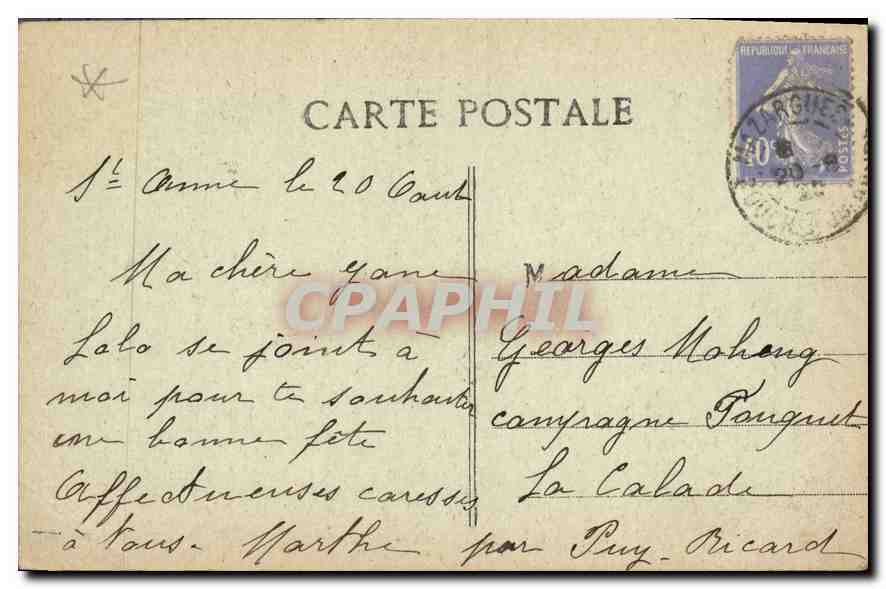 CARTE POSTALE
REPUBLIQUE FRANÇAISE
POSTES
40c
MAZARGUES
20 - 8
BOUCHES DU RHONE
St Anne le 20 Aout
Ma chère Yane
Lolo se joint à
moi pour te souhaiter
une bonne fête
Affectueuses caresses
à Vous. Marthe
Madame
Georges Moheng
campagne Fouquet
La Calade
par Puy-Ricard
CPAPHIL